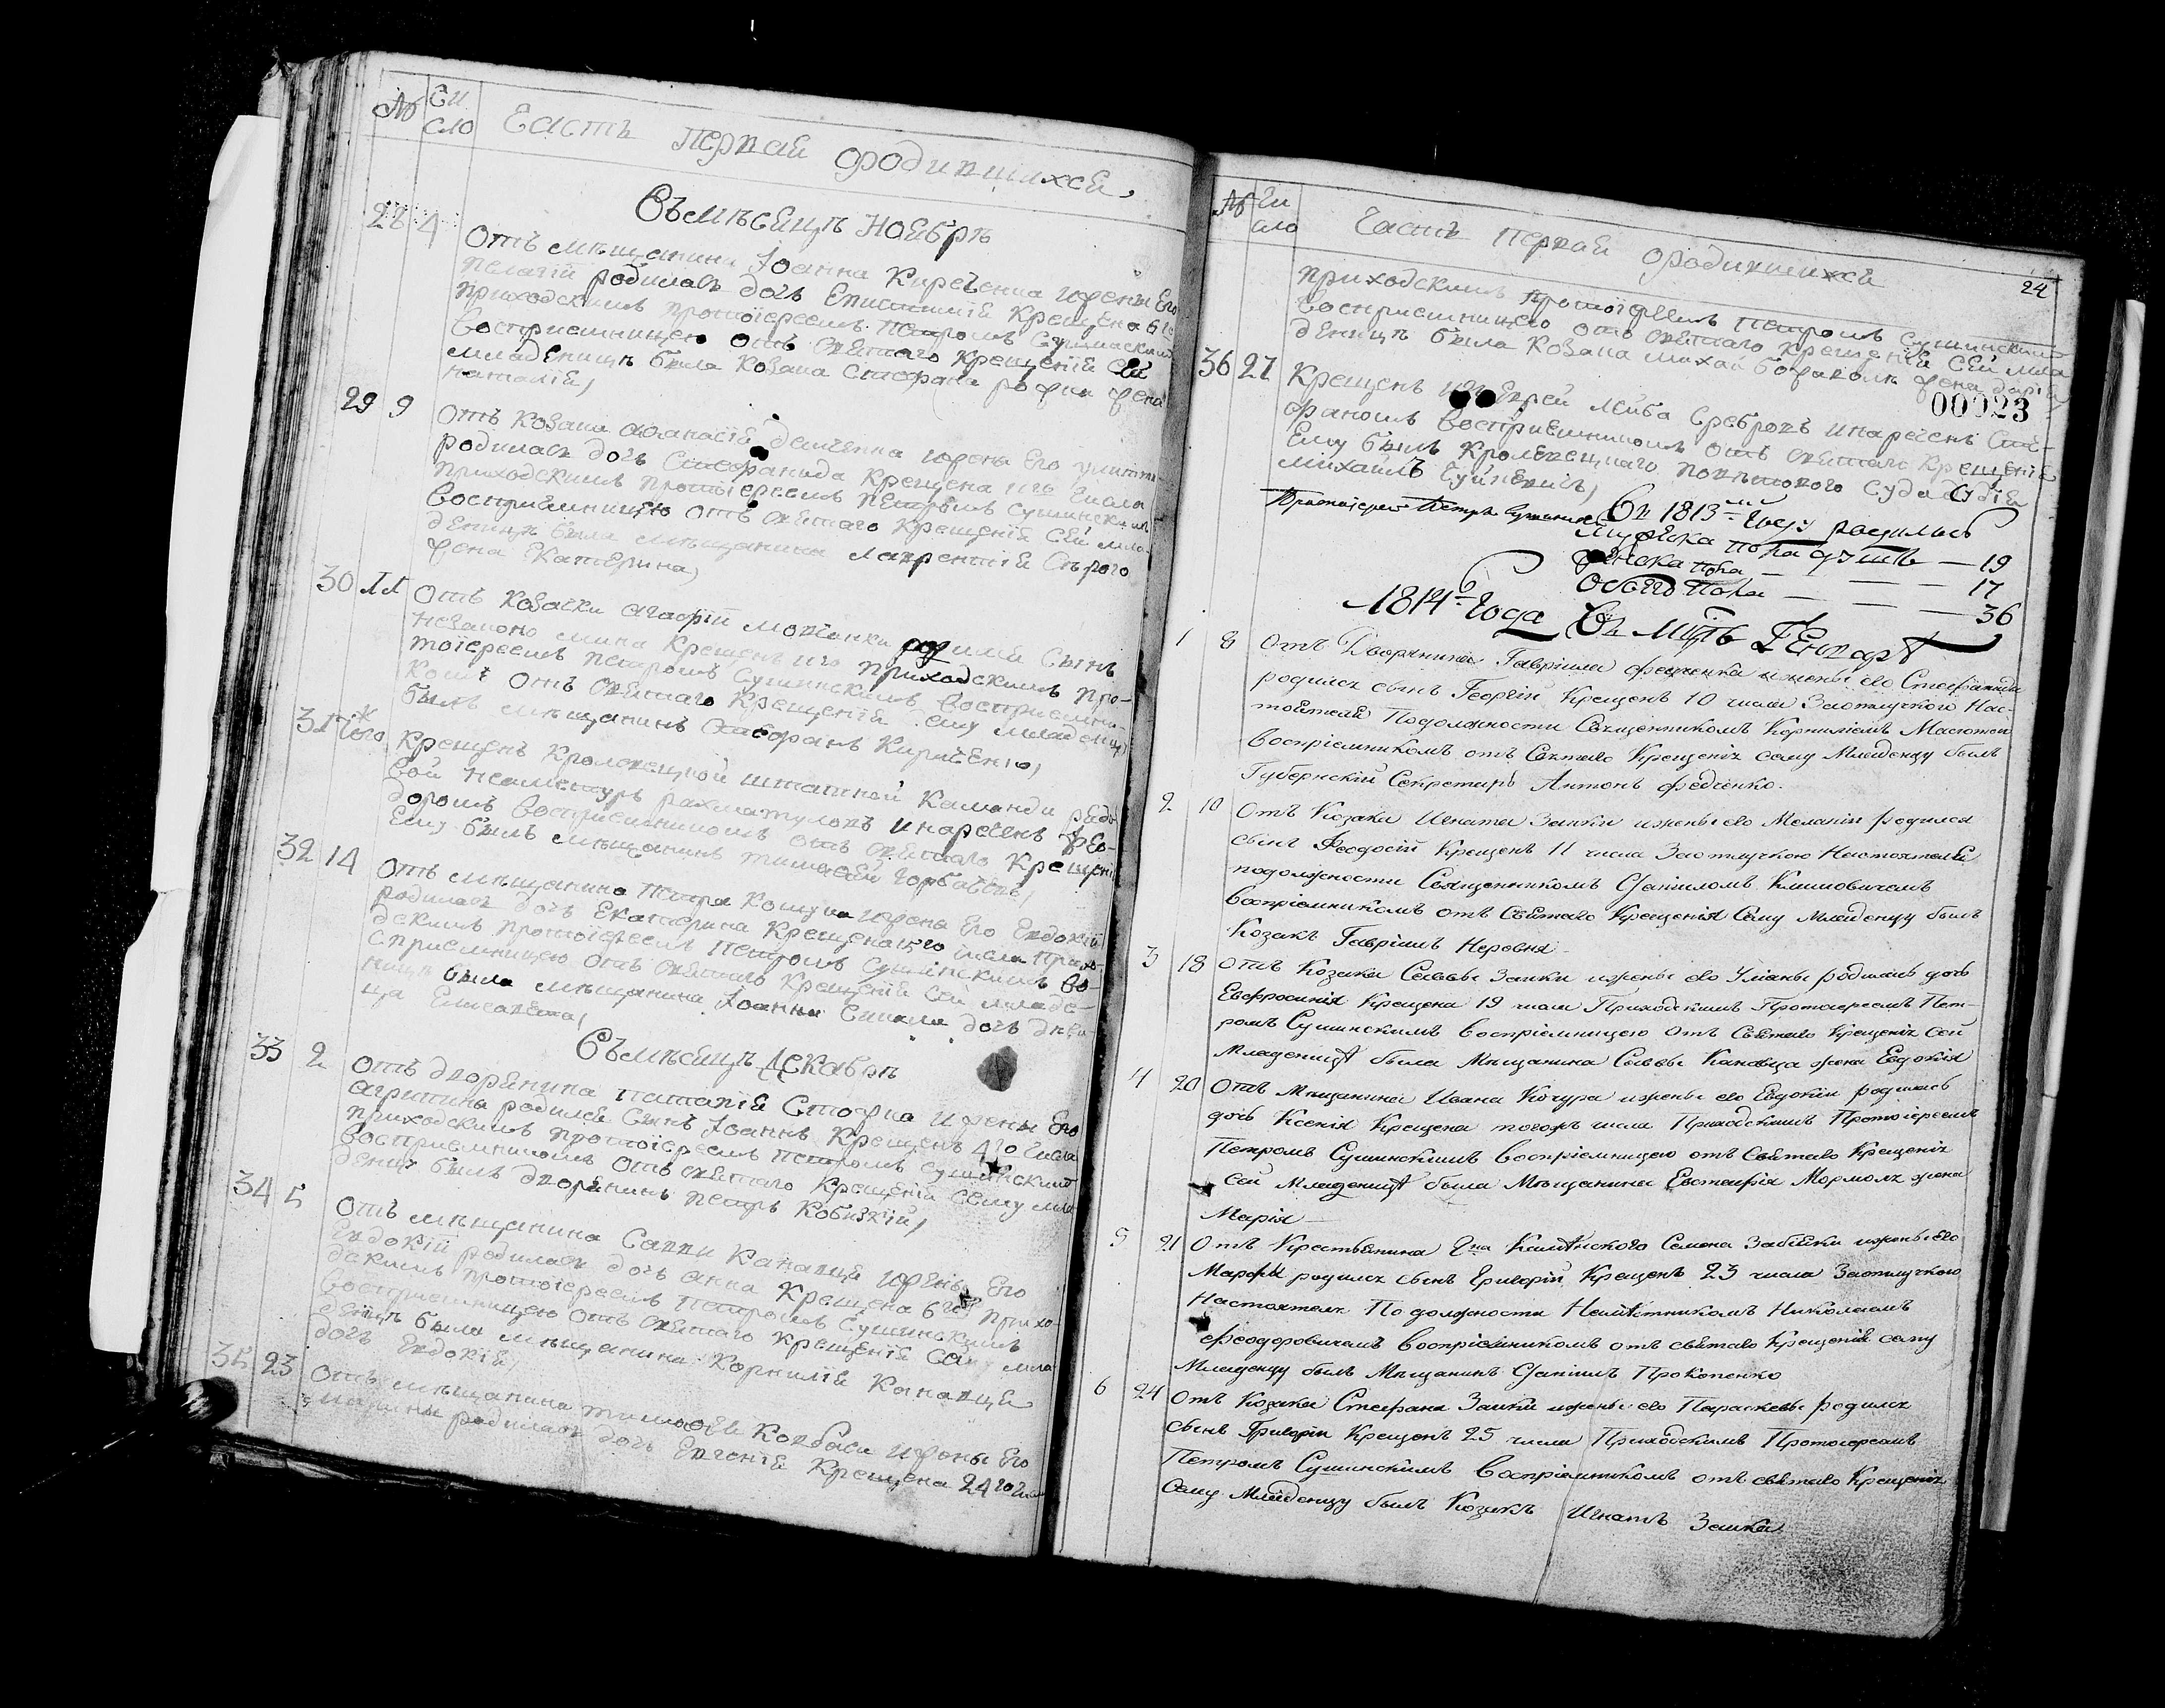 № Чи
сло
Часть Первая ородившихся
Въмѣсяцѣ Ноябрѣ
28 4 Отъ мѣщанина Іоанна Кириченка ижены Его
Пелагіи родилась дочь Епистимія Крещена 6 го
приходскимъ протоіереемъ Петромъ Сушинскимъ
Восприемницею отъ святаго Крещенія сей
младеницѣ была Козака Стефана жена
Наталія
29 9 Отъ Козака Афанасія Демченка ижены Его
родилась дочь Стефанида Крещена числа
приходскимъ протоіереемъ Петромъ Сушинскимъ
Восприемницею отъ святаго Крещенія Сей мла-
деницѣ была мѣщанина Лаврентія Сѣрого
жена Екатерина
30 11 Отъ Козачки Агафіи родился Сынъ
незаконно мина Крещенъ приходскимъ про-
тоіереемъ Петромъ Сушинскимъ Восприемни-
комъ отъ святаго Крещенія ему младенцу
былъ мѣщанинъ Стефанъ Кириченко
31 Крещенъ Кролевецкой штатной Команды рядо-
вой Рахматуловъ инареченъ Фео-
доромъ Восприемникомъ отъ святаго Крещенія
Ему былъ мѣщанинъ Тимофей Горбачевъ
32 14 Отъ мѣщанина Петра ижена Его Евдокіи
родилась дочь Екатерина Крещена 15го числа прихо-
дскимъ протоіереемъ Петромъ Сушинскимъ Во-
сприемницею отъ святаго Крещенія Сей младе-
ницѣ была мѣщанина Іоанна дочь дѣви-
ца Елисавета
Въмѣсяцѣ Декабрѣ
33 2 Отъ дворянина Стофиа ижены Его
агрипины родился Сынъ Іоаннъ Крещенъ 4го числа
приходскимъ протоіереемъ Петромъ Сушинскимъ
Восприемникомъ отъ святаго Крещенія Сему мла-
денцу былъ дворянинъ Петръ
34 5 Отъ мѣщанина Саввы Канавца ижены Его
Евдокіи родилась дочь Анна Крещена 6го прихо-
дскимъ протоіереемъ Петромъ Сушинскимъ
Восприемницею отъ святаго Крещенія Сей мла-
деницѣ была мѣщанина Корнилія Канавца
дочь Евдокія
35 23 Отъ мѣщанина Тимофея Ковбасы ижены Его
Марины родилась дочь Евгенія Крещена 24го числа
№ Чи
сло
Часть Первая ородившихся
24
приходскимъ протоіереемъ Петромъ Сушинскимъ
Восприемницею отъ святаго Крещенія Сей мла-
деницѣ была Козака Михаила жена Дарія
00023
36 27 Крещенъ изъ Еврей Лейба Сребровъ инареченъ Сте-
фаномъ Восприемникомъ отъ святаго Крещенія
Ему былъ Кролевецкаго повѣтового Суда Судія
Михайлъ Чуйкевичъ
Протоіерей Петръ Сушинскій
Въ 1813мъ Году родилось
Мужеска пола душъ — 19
женска пола — 17
Обоего пола — 36
1814го Года Въ мцѣ Генварѣ
1 8 Отъ Дворянина Гавріила Федченка ижены его Стефаниды
родился сынъ Георгій Крещенъ 10 числа Заотлучкою Нас-
тоятеля Подолжности Священникомъ Корниліемъ
Воспріемникомъ отъ Святаго Крещенія сему Младенцу былъ
Губернскій Секретарь Антонъ Федченко.
2 10 Отъ Козака Игната Заики ижены его Меланіи родился
сынъ Феодосій Крещенъ 11 числа Заотлучкою Настоятеля
подолжности Священникомъ Даніиломъ Климовичемъ
Воспріемникомъ отъ Святаго Крещенія Сему Младенцу былъ
Козакъ Гавріилъ Неровня
3 18 Отъ Козака Саввы Заики ижены его Ульяны родилась дочь
Евфросинія Крещена 19 числа Приходскимъ Протоіереемъ Пет-
ромъ Сушинскимъ Воспріемницею отъ Святаго Крещенія Сей
Младеницѣ была Мѣщанина Саввы Канавца жена Евдокія
4 20 Отъ Мѣщанина Ивана Кочура ижены его Евдокіи родилась
дочь Ксенія Крещена тогожъ числа Приходскимъ Протоіереемъ
Петромъ Сушинскимъ Воспріемницею отъ Святаго Крещенія
Сей Младеницѣ была Мѣщанина Евстафія Мормоля жена
Марія
5 21 Отъ Крестьянина Семена Забіяки ижены его
Марфы родился сынъ Григорій Крещенъ 23 числа Заотлучкою
Настоятеля По должности Намѣстникомъ Николаемъ
Феодоровичемъ Воспріемникомъ отъ святаго Крещенія сему
Младенцу былъ Мѣщанинъ Даніилъ Прокопенко
6 24 Отъ Козака Стефана Заики ижены его Параскевы родился
сынъ Григорій Крещенъ 25 числа Приходскимъ Протоіереемъ
Петромъ Сушинскимъ Воспріемникомъ отъ святаго Крещенія
Сему Младенцу былъ Козакъ Игнатъ Заика